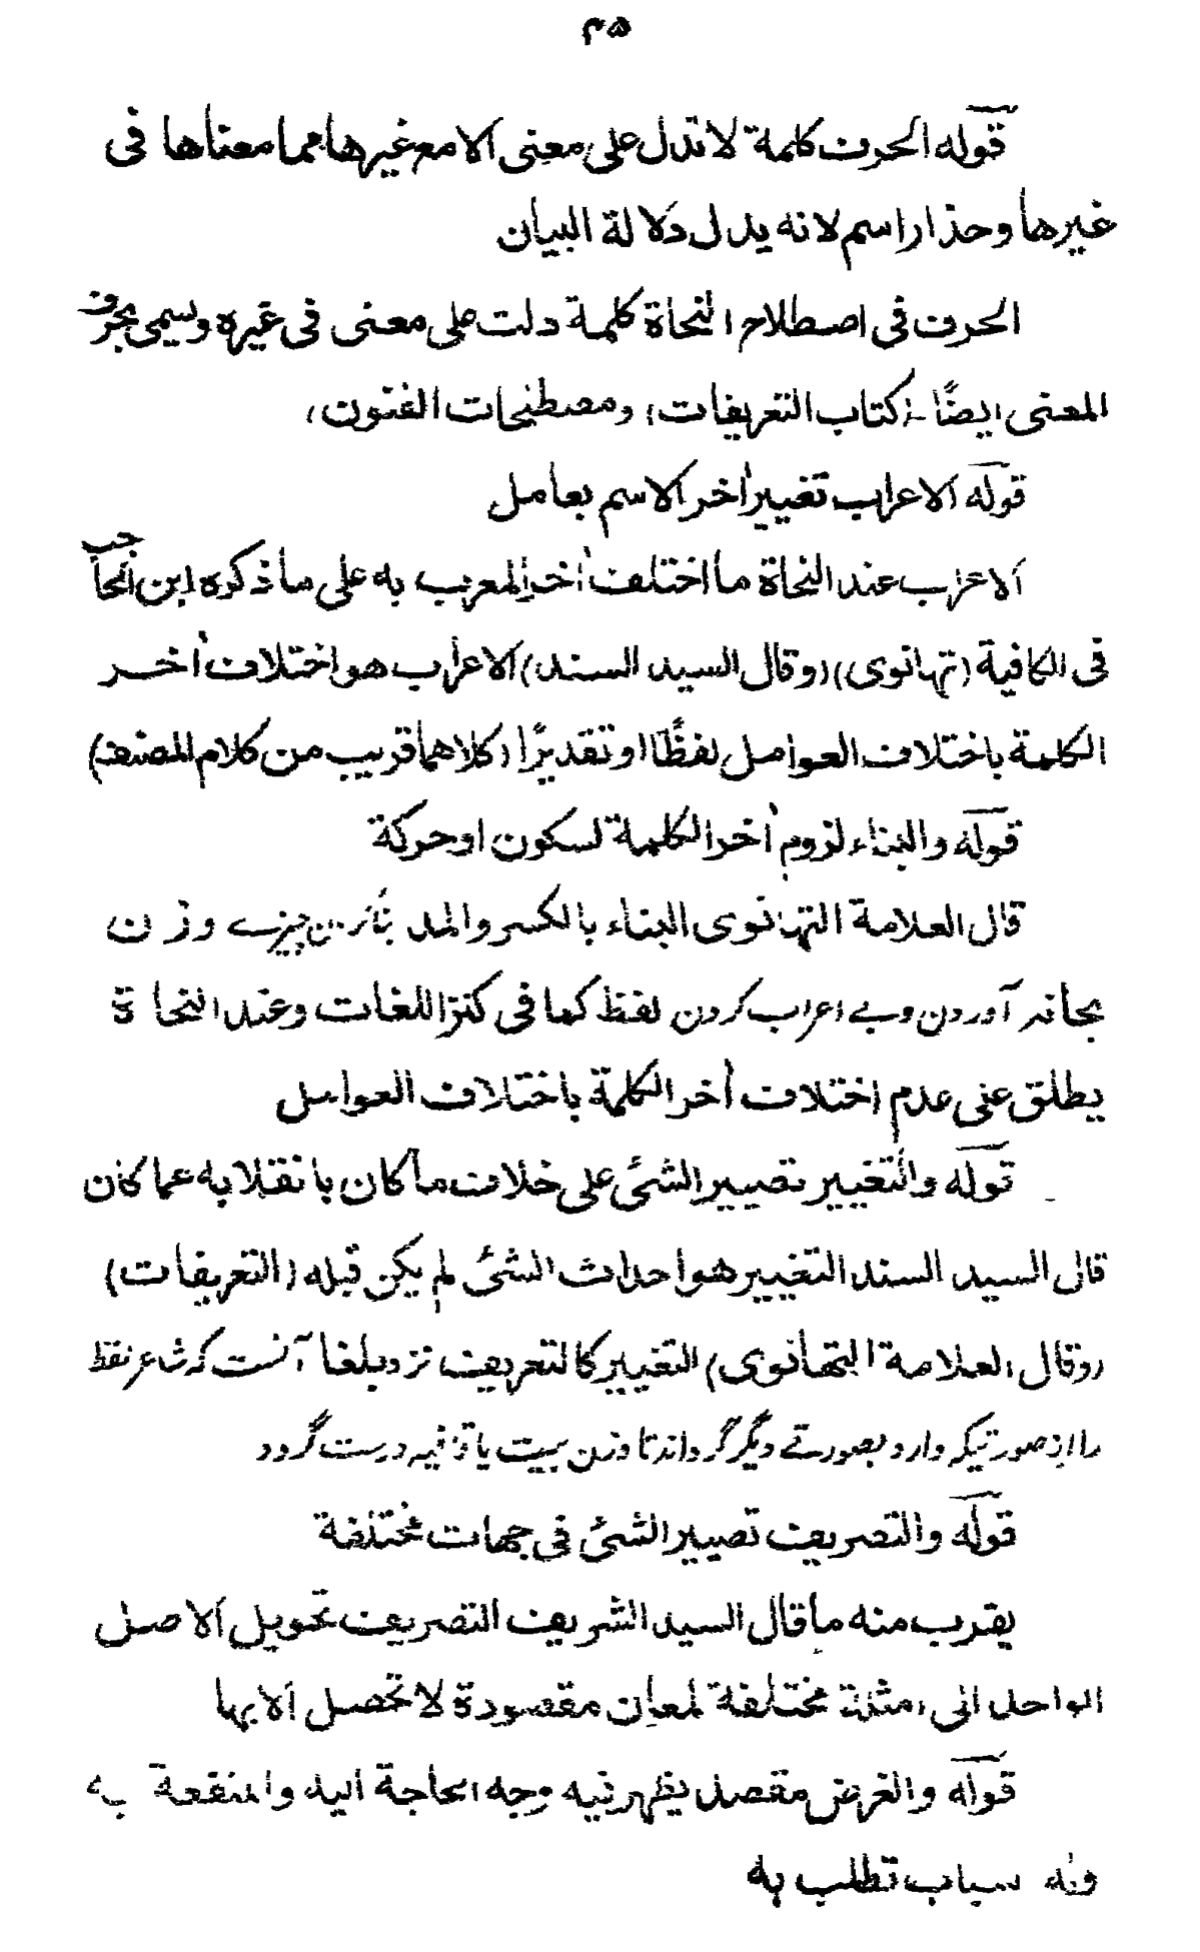 ۴۵
قوله الحرف كلمة لا تدل على معنى الا مع غيرها مما معناها فى
غيرها وحذار اسم لانه يدل دلالة البيان
الحرف فى اصطلاح النحاة كلمة دلت على معنى فى غيره ويسمى بحرف
المعنى ايضًا- (كتاب التعريفات) ومصطلحات الفنون،
قوله الاعراب تغيير أخر الاسم بعامل
الاعراب عند النحاة ما اختلف أخر المعرب به على ما ذكره ابن الحاجب
فى الكافية (تهانوى) (وقال السيد السند) الاعراب هو اختلاف أخر
الكلمة باختلاف العوامل لفظًا او تقديرًا (كلاهما قريب من كلام المصنف)
قوله والبناء لزوم أخر الكلمة لسكون او حركة
قال العلامة التهانوى البناء بالكسر والمد بنا چيزے وزن
بجانہ آوردن وبے اعراب كردن لفظ كما فى كنز اللغات وعند النحاة
يطلق على عدم اختلاف أخر الكلمة باختلاف العوامل
قوله والتغيير تصيير الشئ على خلاف ما كان بانقلابه عما كان
قال السيد السند التغيير هو احداث الشئ لم يكن قبله (التعريفات)
(وقال العلامة التهانوى) التغيير كالتعريف نزد بلغا آنست كہ شاعر لفظ
را از صورتيكہ دارد بصورتے ديگر گرداند تا وزن بيت يا قافيہ درست گردد
قوله والتصريف تصيير الشئ فى جهات مختلفة
يقرب منه ما قال السيد الشريف التصريف تحويل الاصل
الواحد الى امثلة مختلفة لمعان مقصودة لا تحصل الا بها
قوله والغرض مقصد يظهر فيه وجه الحاجة اليه والمنفعة به
وله سباب تطلب به